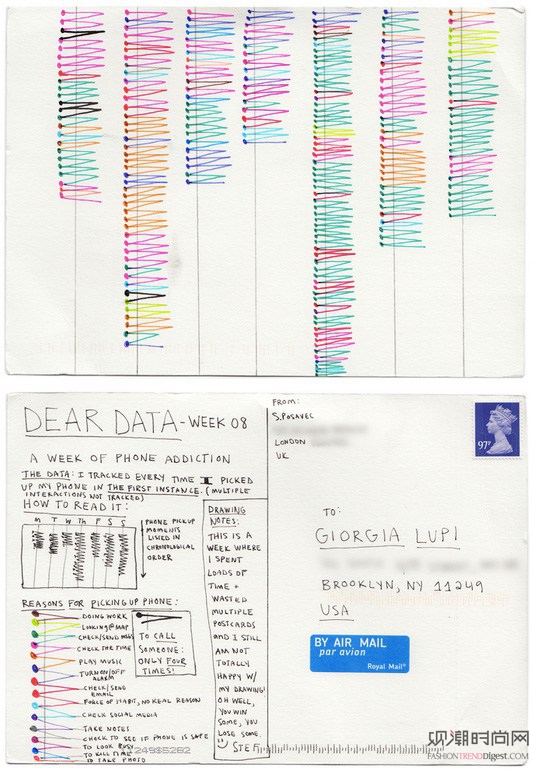 DEAR DATA - WEEK 08
A WEEK OF PHONE ADDICTION
THE DATA: I TRACKED EVERY TIME I PICKED
UP MY PHONE IN THE FIRST INSTANCE. (MULTIPLE
INTERACTIONS NOT TRACKED)
HOW TO READ IT:
M T W TH F S S
PHONE PICKUP
MOMENTS
LISTED IN
CHRONOLOGICAL
ORDER
REASONS FOR PICKING UP PHONE:
DOING WORK
LOOKING@MAP
CHECK/SEND MSG
CHECK THE TIME
PLAY MUSIC
TURN ON/OFF
ALARM
CHECK/SEND
EMAIL
FORCE OF HABIT, NO REAL REASON
CHECK SOCIAL MEDIA
TAKE NOTES
CHECK TO SEE IF PHONE IS SAFE
TO LOOK BUSY
TO KILL TIME
TO TAKE PHOTO
TO CALL
SOMEONE:
ONLY FOUR
TIMES!
DRAWING
NOTES:
THIS IS A
WEEK WHERE
I SPENT
LOADS OF
TIME +
WASTED
MULTIPLE
POSTCARDS
AND I STILL
AM NOT
TOTALLY
HAPPY W/
MY DRAWING!
OH WELL,
YOU WIN
SOME, YOU
LOSE SOME.
STEF
FROM:
S. POSAVEC
LONDON
UK
97P
TO:
GIORGIA LUPI
BROOKLYN, NY 11249
USA
BY AIR MAIL
par avion
Royal Mail®
观潮时尚网
FASHIONTRENDDIGEST.COM